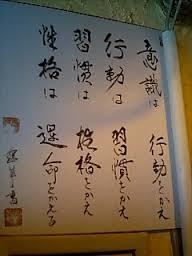 意識は 行動をかえ
行動は 習慣をかえ
習慣は 性格をかえ
性格は 運命をかえる